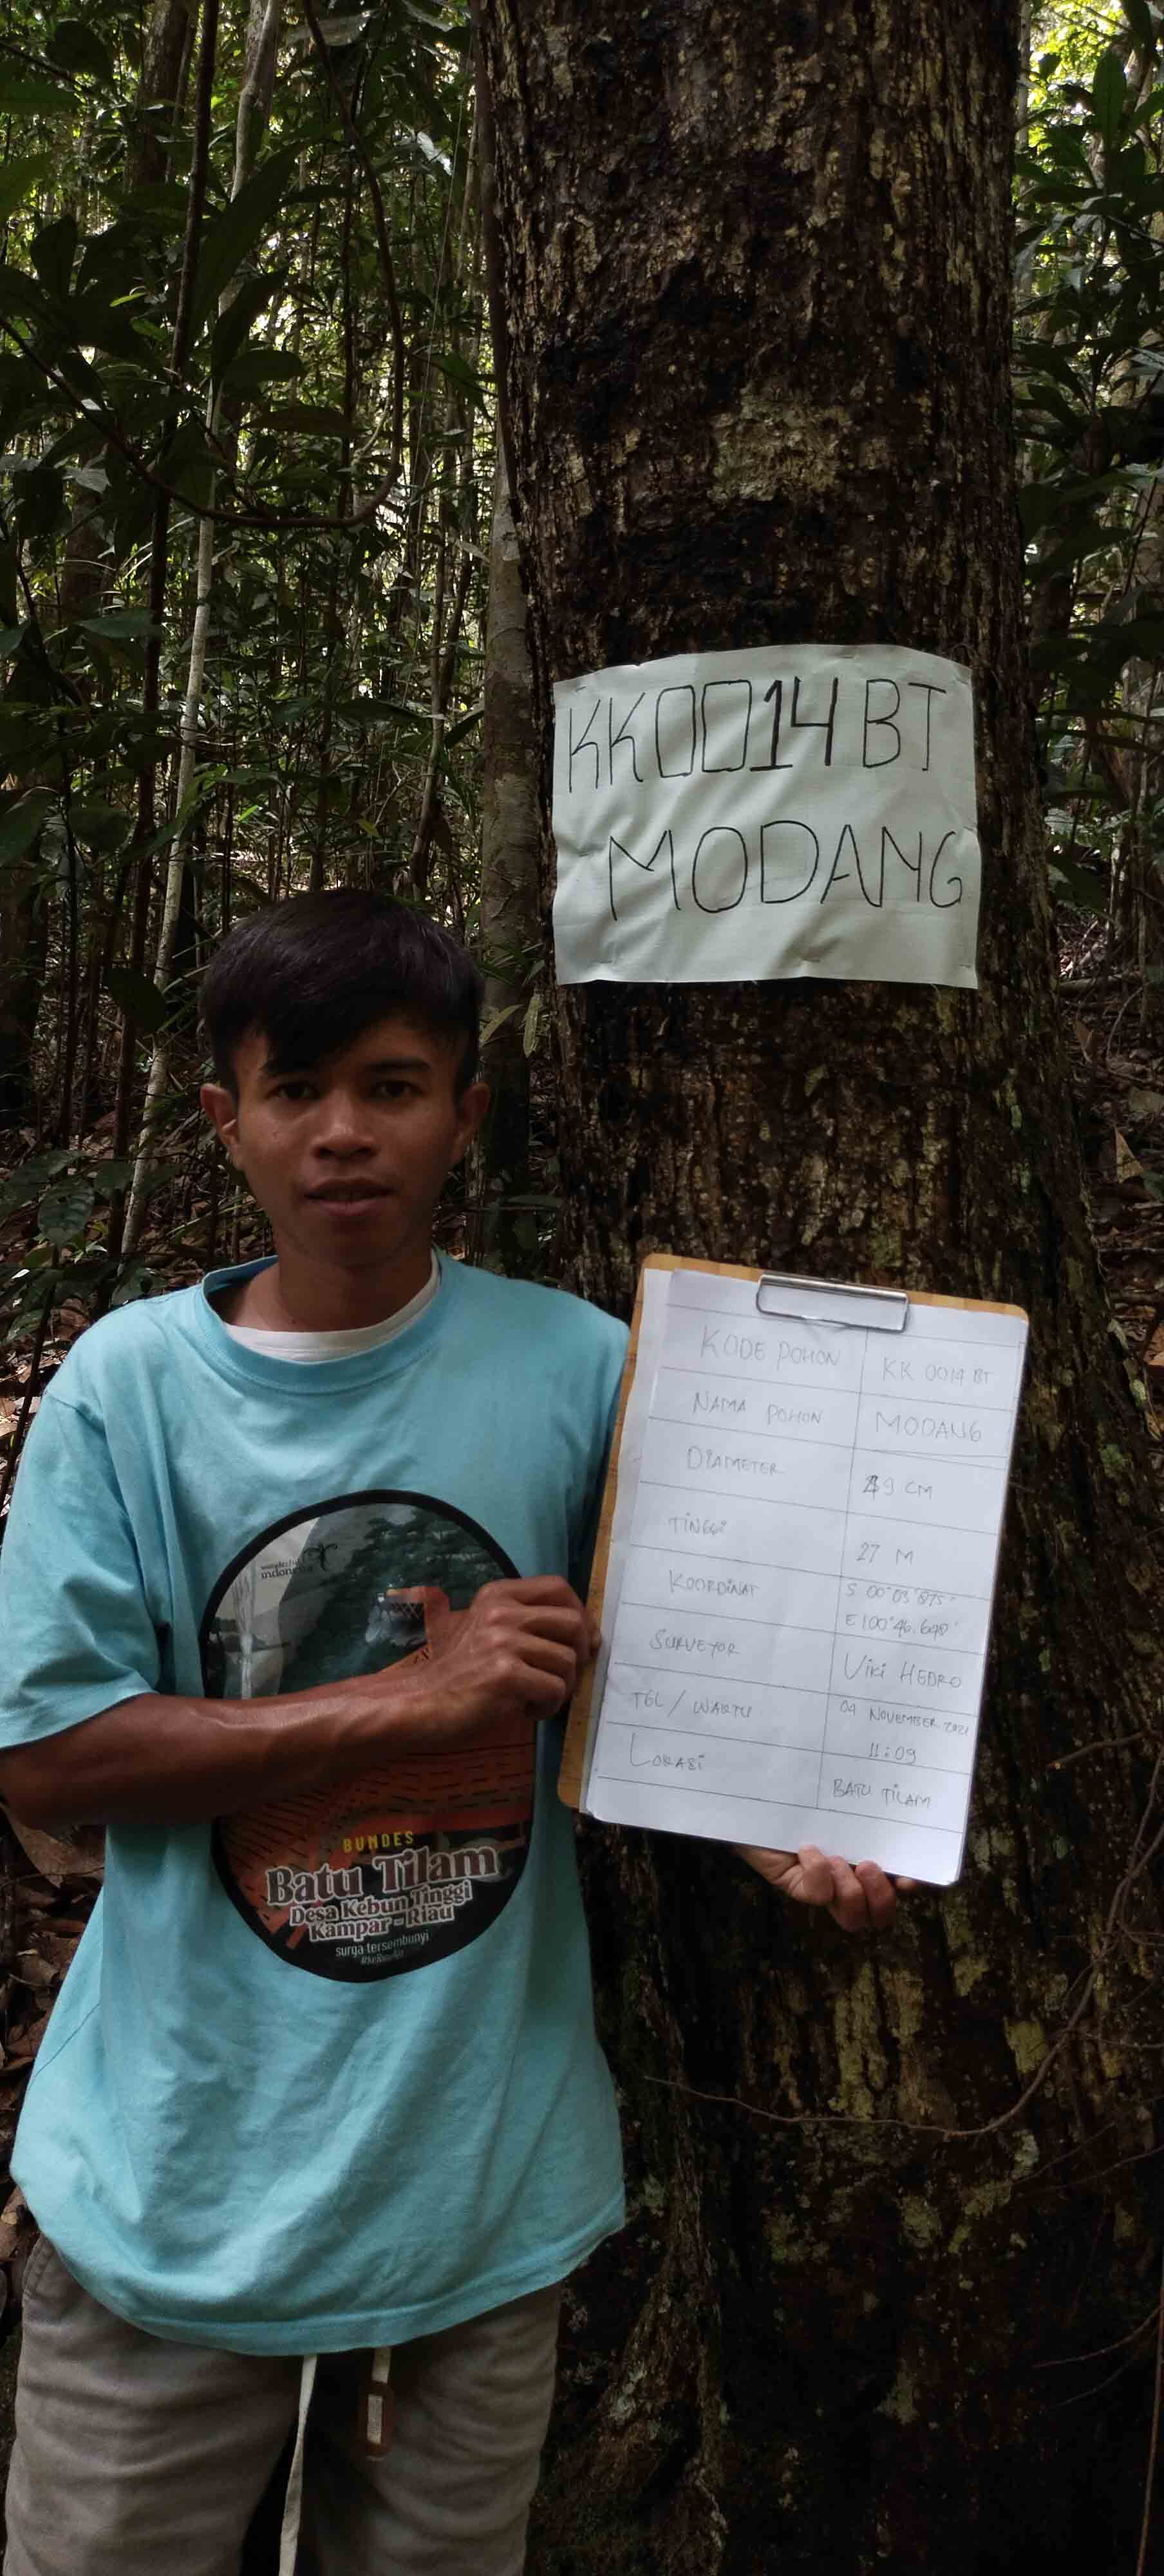 KK0014 BT
MODANG
KODE POHON KK 0014 BT
NAMA POHON MODANG
DIAMETER 49 CM
TINGGI 27 M
KOORDINAT S 00°03'875"
E100°46.640'
SURVEYOR VIKI HEDRO
TGL / WAKTU 04 NOVEMBER 2021
11:09
LOKASI BATU TILAM
wonderful
indonesia
BUMDES
Batu Tilam
Desa Kebun Tinggi
Kampar - Riau
surga tersembunyi